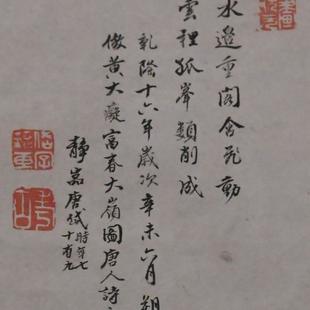 水邊重閣含飛動
雲裡孤峯類削成
乾隆十六年歲次辛未六月朔
倣黃大癡富春大嶺圖唐人詩
靜嵓唐岱時年七
十有九